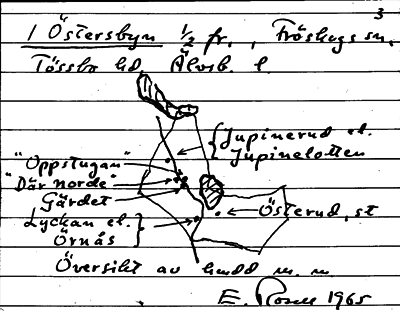 3
1 Östersbyn 1/2 fr., Fröskogs sn.
Tössbo hd. Älvsb. l.
Jupinerud el.
Jupinelotten
"Oppstugan"
"Där norde"
Gärdet
Lyckan el.
Örnäs
Österud, st
Översikt av hmdd m. m.
E. Rosell 1965